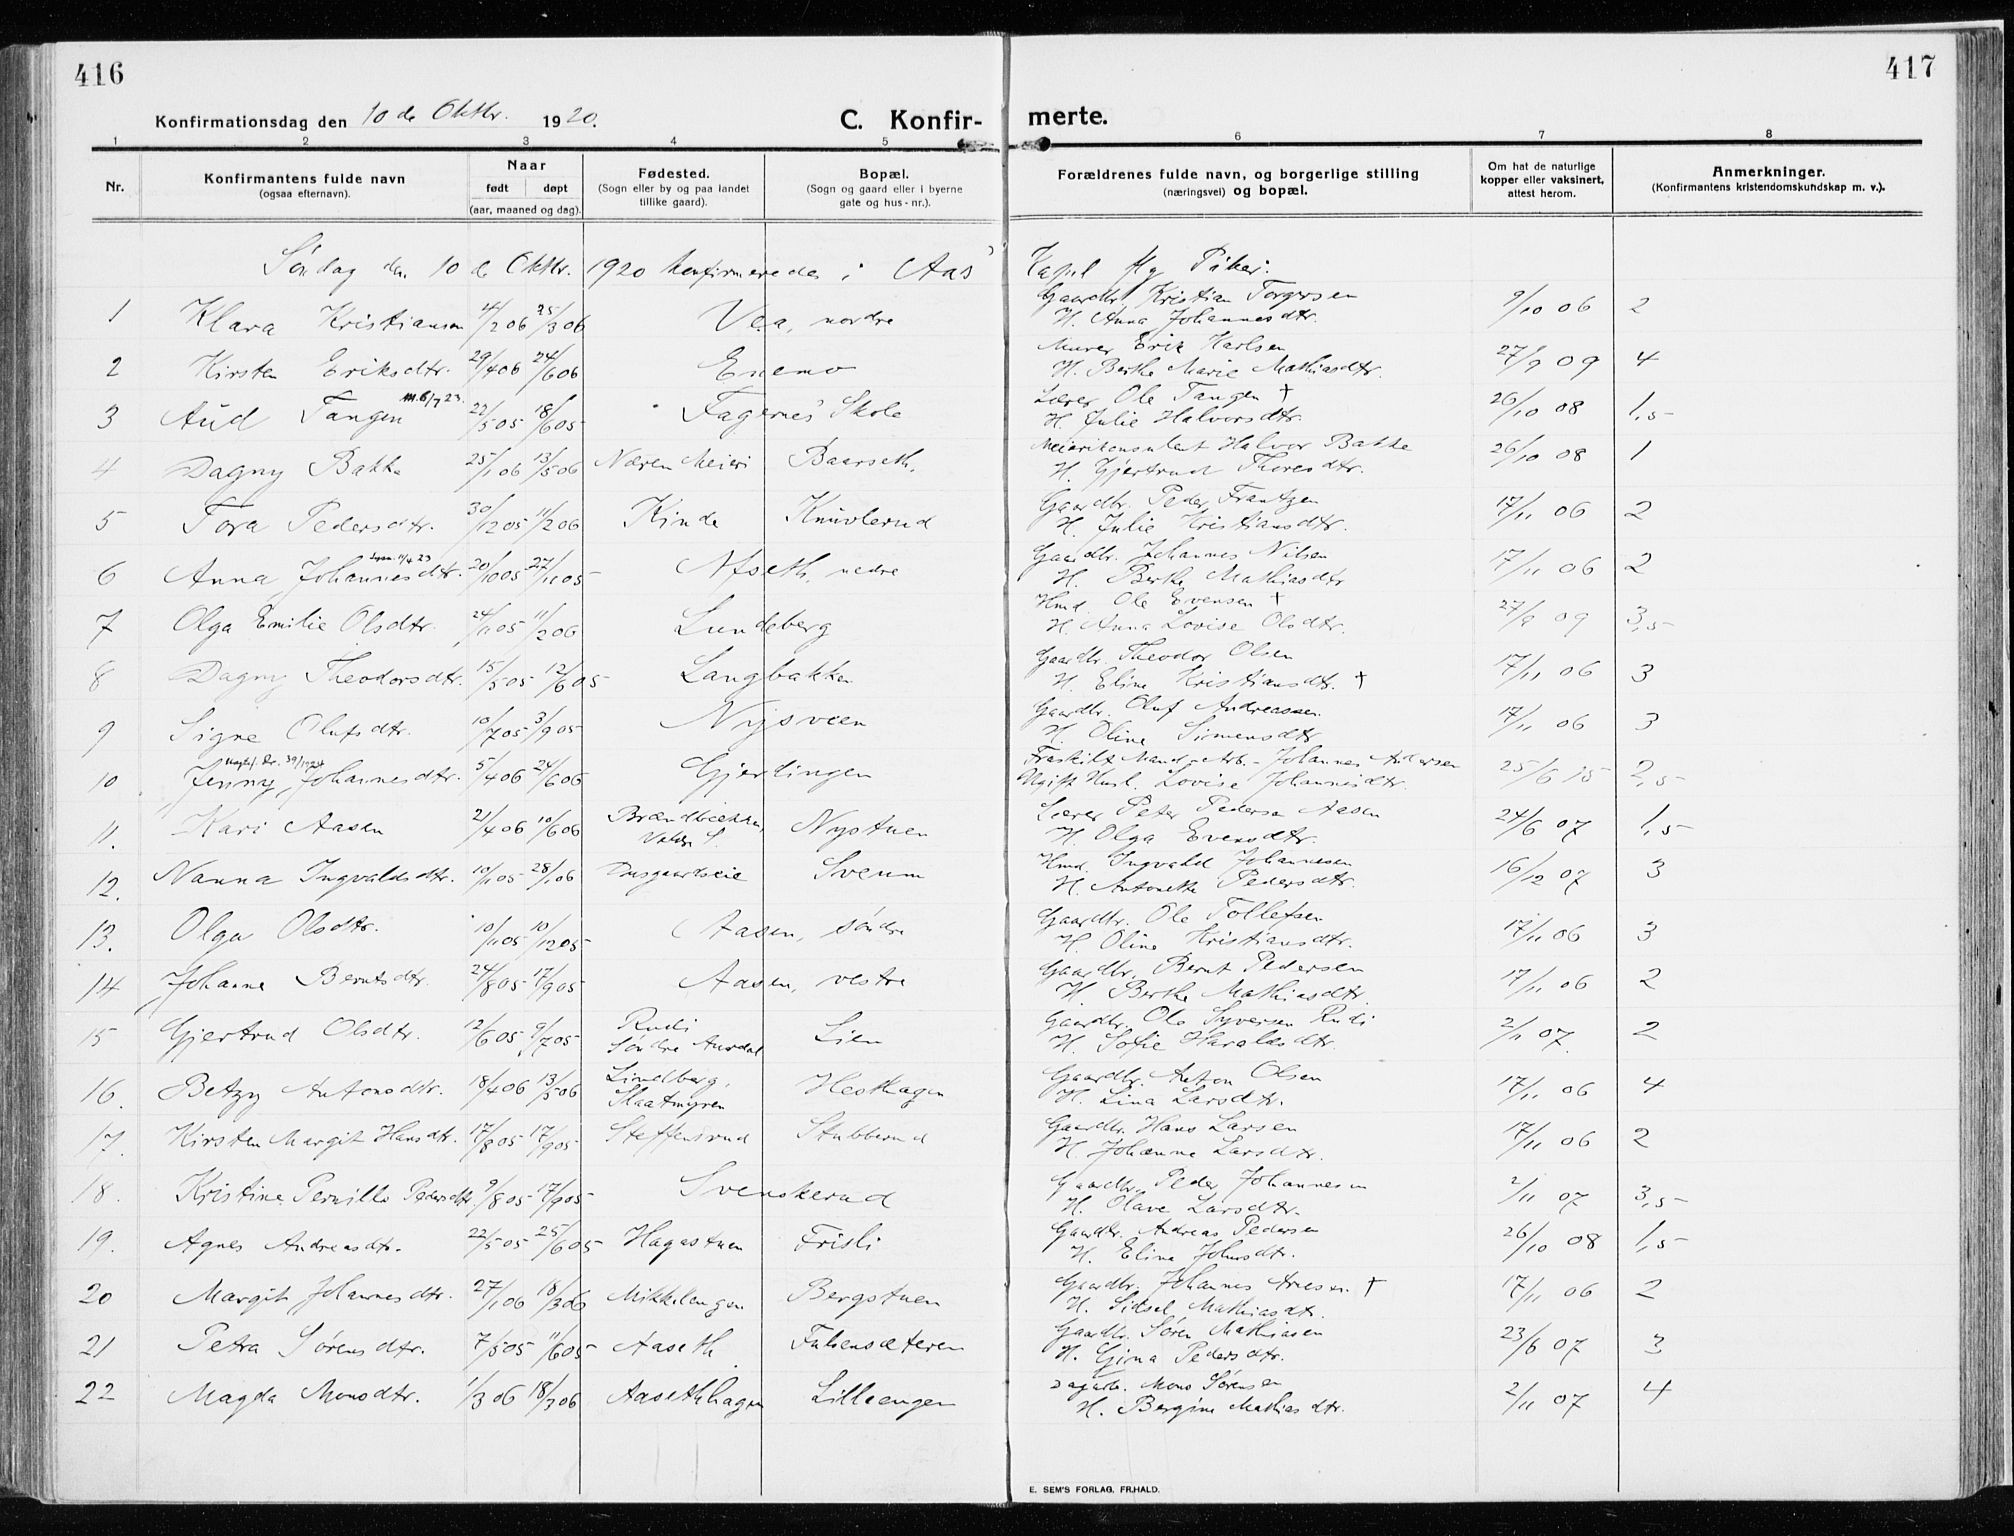 416
417
Konfirmationsdag den 10 de Oktbr. 1920.
C. Konfir-
merte.
1 2 3 4 5 6 7 8
Nr.
Konfirmantens fulde navn
(ogsaa efternavn).
Naar
født døpt
(aar, maaned og dag).
Fødested.
(Sogn eller by og paa landet
tillike gaard).
Bopæl.
(Sogn og gaard eller i byerne
gate og hus-nr.).
Forældrenes fulde navn, og borgerlige stilling
(næringsvei) og bopæl.
Om hat de naturlige
kopper eller vaksinert,
attest herom.
Anmerkninger.
(Konfirmantens kristendomskundskap m. v.).
Søndag den 10 de Oktbr. 1920 konfirmeredes i Aas Kapel flg Piker:
1 Klara Kristiansen 4/2 06 25/3 06 Vea, nordre Gaardbr. Kristian Torgersen 9/10 06 2
H. Anna Johannesdtr.
2 Kirsten Eriksdtr. 29/4 06 24/6 06 Enemo Murer Erik Karlsen 27/9 09 4
H. Berthe Marie Mathiasdtr.
m. 6/7 23.
3 Aud Tangen 22/5 05 18/6 05 Fagernes Skole Lærer Ole Tangen † 26/10 08 1,5
H. Julie Halvorsdtr.
4 Dagny Bakke 25/1 06 13/5 06 Næren Meieri Baarseth. Meierikonsulent Halvor Bakke 26/10 08 1
H. Gjertrud Thoresdtr.
5 Tora Pedersdtr. 30/12 05 11/2 06 Kinde Knuvlerud Gaardbr. Peder Frantzen 17/11 06 2
H. Julie Kristiansdtr.
11/4 23
6 Anna Johannesdtr. 20/10 05 27/11 05 Afseth, nedre Gaardbr. Johannes Nilsen 17/11 06 2
H. Berthe Mathiasdtr
7 Olga Emilie Olsdtr. 24/11 05 11/2 06 Lundeberg Hmd. Ole Evensen † 27/9 09 3,5
H. Anna Lovise Olsdtr.
8 Dagny Theodorsdtr. 15/5 05 12/6 05 Langbakken Gaardbr. Theodor Olsen 17/11 06 3
H. Eline Kristiansdtr. †
9 Signe Olufsdtr. 10/7 05 3/9 05 Nysveen Gaardbr. Oluf Andreassen 17/11 06 3
H. Oline Simensdtr
39/1924
10 Jenny Johannesdtr. 5/4 06 24/6 06 Gjerdingen Fraskilt Mand - Arb. - Johannes Andersen 25/6 15 2,5
Ugift Hush. Lovise Johannesdtr.
11. Kari Aasen 21/4 06 10/6 06 Brændbækken, Nystuen Lærer Peter Pedersen Aasen 24/6 07 1,5
H. Olga Evensdtr.
12. Nanna Ingvaldsdtr. 10/11 05 28/1 06 Dusgaardseie Sveum Hmd. Ingvald Johannesen 16/12 07 3
H. Antonette Pedersdtr.
13. Olga Olsdtr. 10/11 05 10/12 05 Aasen, søndre Gaardbr. Ole Tollefsen 17/11 06 3
H. Oline Kristiansdtr.
14 Johanne Berntsdtr. 24/8 05 17/9 05 Aasen, vestre Gaardbr. Bernt Pedersen 17/11 06 2
H. Berthe Mathiasdtr.
15 Gjertrud Olsdtr. 12/6 05 9/7 05 Rudi Lien Gaardbr. Ole Syversen Rudi 2/11 07. 2
Søndre Aurdal H. Sofie Haraldsdtr.
16. Betzy Antonsdtr. 18/4 06 13/5 06 Lindberg, Hesthagen Gaardbr. Anton Olsen 17/11 06 4
Slaatmyren H. Lina Larsdtr.
17. Kirsten Margit Hansdtr. 17/8 05 17/9 05 Steffensrud Stubberud Gaardbr. Hans Larsen 17/11 06 2
H. Johanne Larsdtr.
18. Kristine Pernille Pedersdtr. 9/8 05 17/9 05 Svenskerud Gaardbr. Peder Johannesen 2/11 07 3,5
H. Olave Larsdtr.
19. Agnes Andreasdtr. 22/5 05 25/6 05 Hagastuen Frisli Gaardbr. Andreas Pedersen 26/10 08 1,5
H. Elina Johnsdtr.
20 Margit Johannesdtr. 27/1 06 18/3 06 Mikkelengen Bergstuen Gaardbr. Johannes Arnesen † 17/11 06 2
H. Sidsel Mathiasdtr.
21 Petra Sørensdtr. 7/5 05 11/6 05 Aaseth Fulsensæteren Gaardbr. Søren Mathiasen 23/6 07 3
H. Gina Pedersdtr.
22 Magda Monsdtr. 1/3 06 18/3 06 Aasethhagen Lilleengen Dagarb. Mons Sørensen 2/11 07 4
H. Bergine Mathiasdtr.
E. SEM'S FORLAG, FR.HALD.